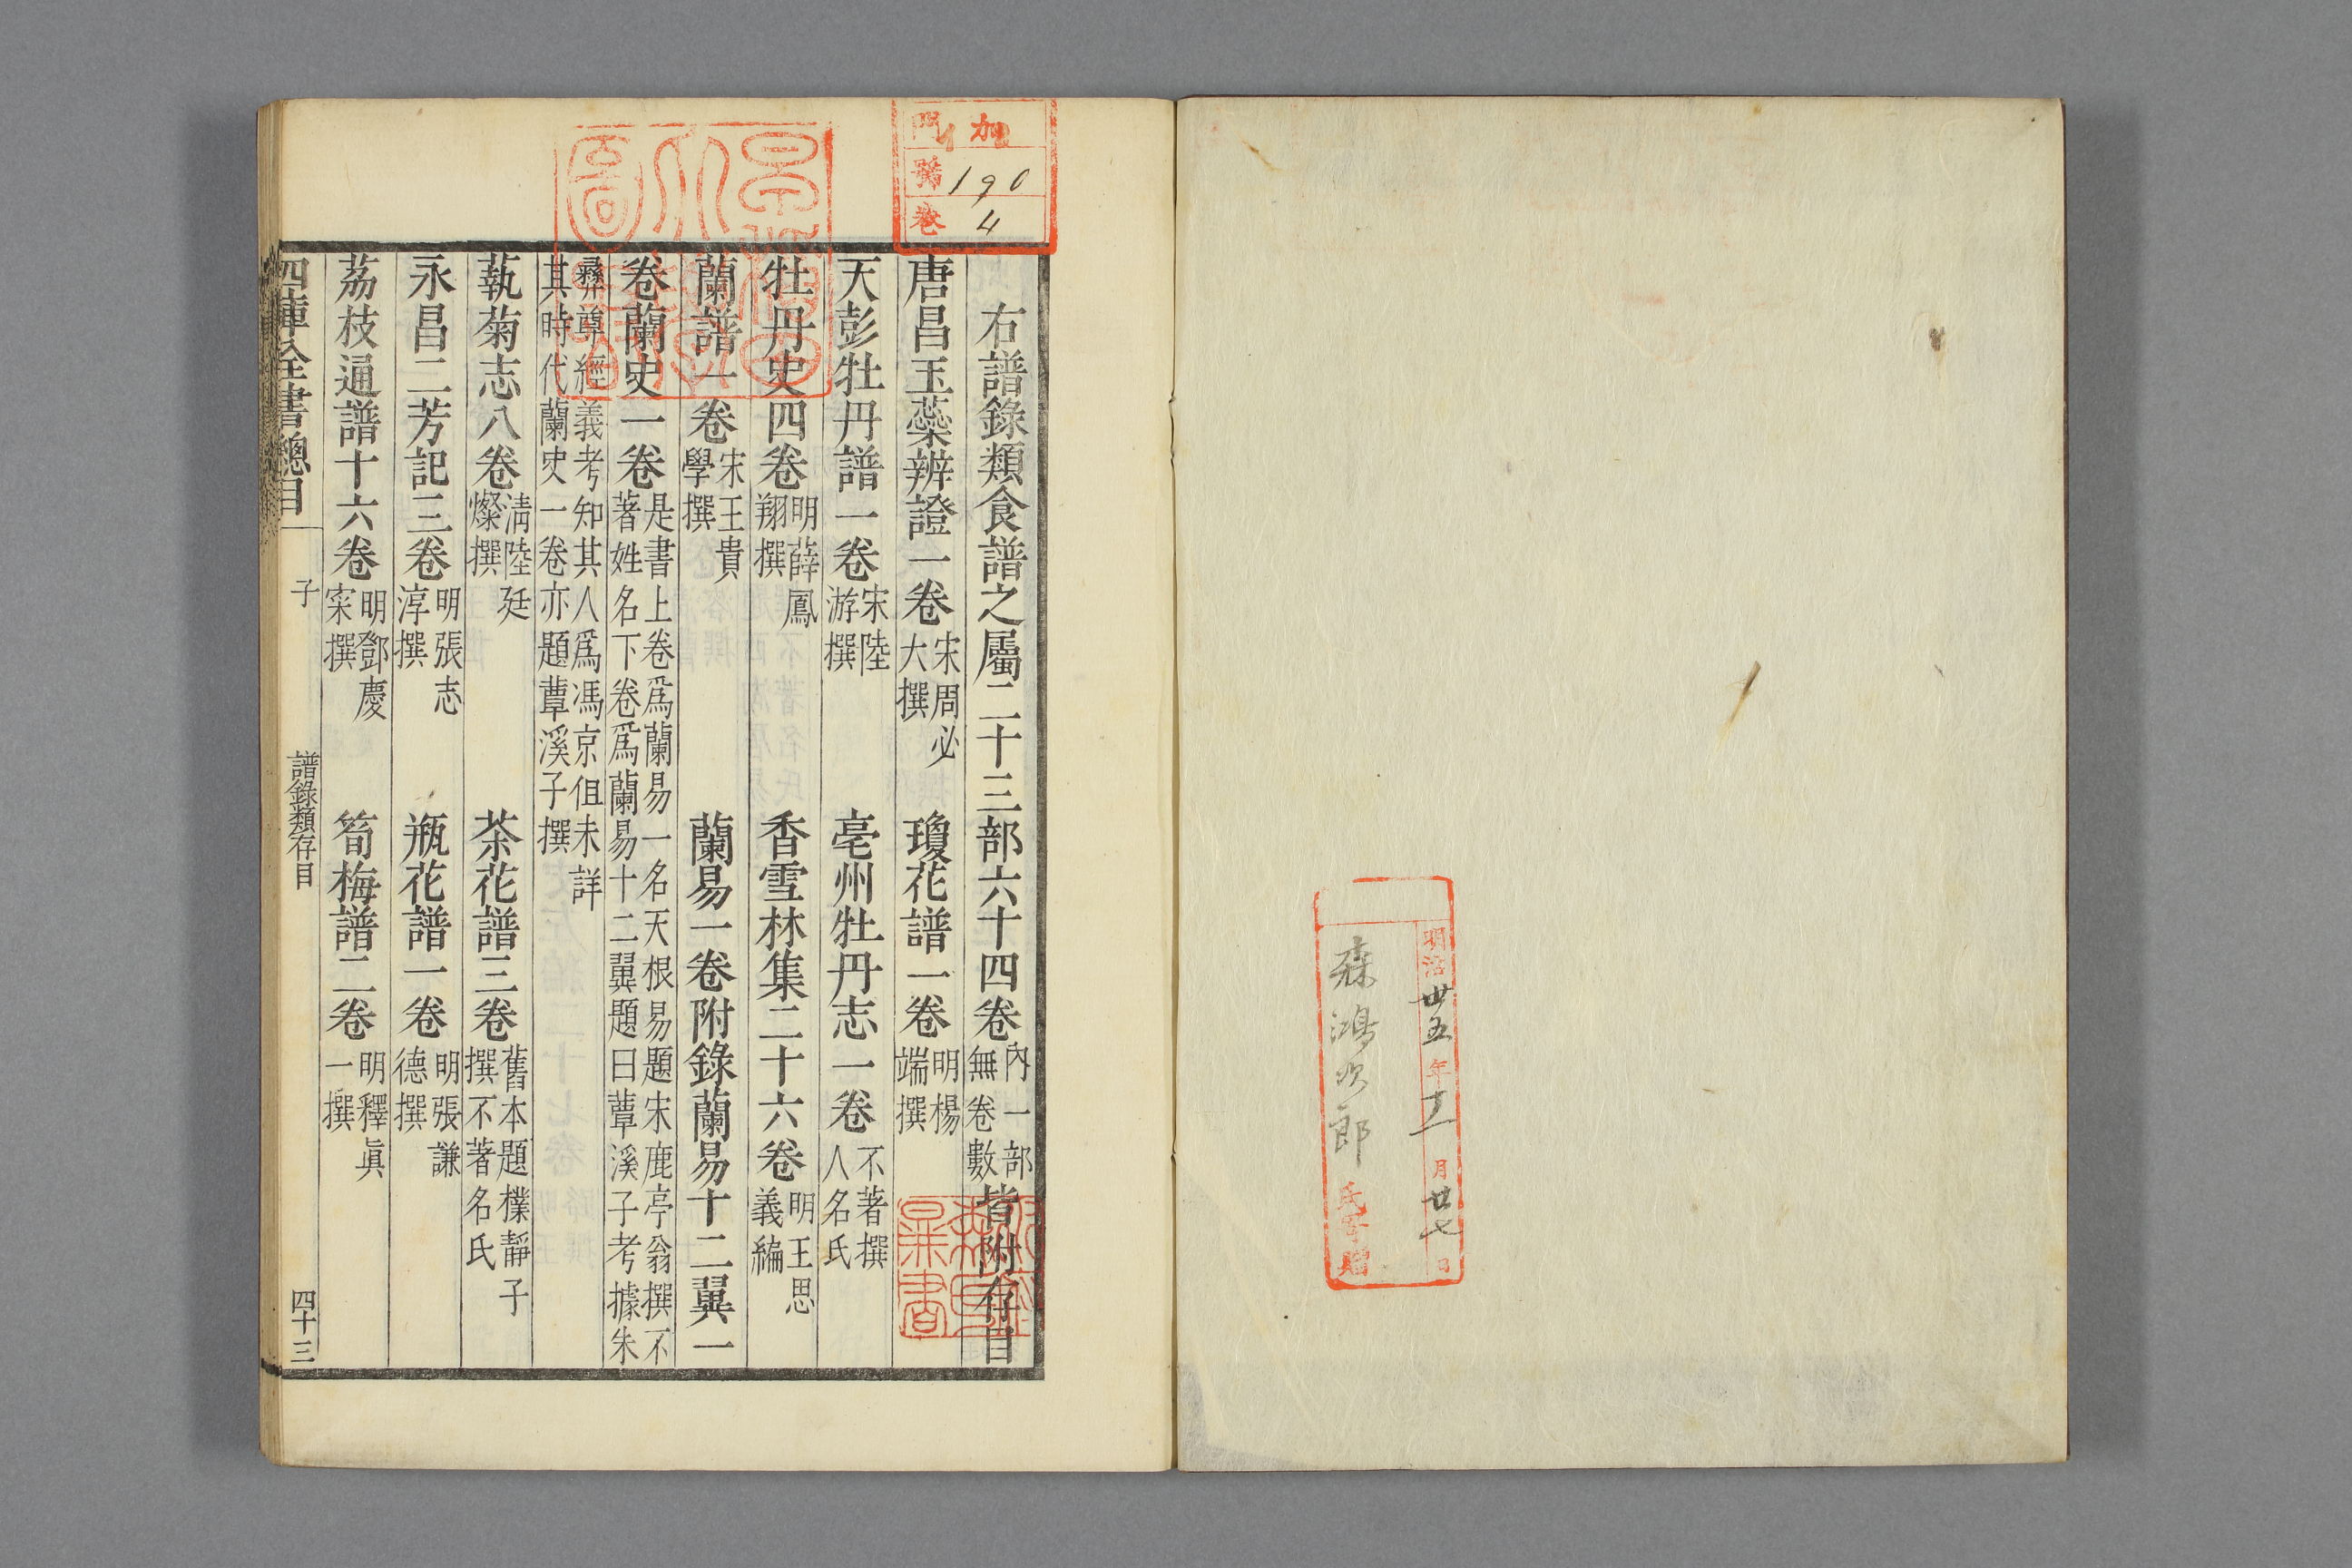 明治卅五年十一月廿七日
森鴻次郎氏寄贈
加
門
號 190
卷 4
右譜錄類食譜之屬二十三部六十四卷內一部無卷數皆附存目
唐昌玉蘂辨證一卷宋周必大撰 瓊花譜一卷明楊端撰
天彭牡丹譜一卷宋陸游撰 亳州牡丹志一卷不著撰人名氏
牡丹史四卷明薛鳳翔撰 香雪林集二十六卷明王思義編
蘭譜一卷宋王貴學撰 蘭易一卷附錄蘭易十二翼一
卷蘭史一卷是書上卷爲蘭易一名天根易題宋鹿亭翁撰不著姓名下卷爲蘭易十二翼題曰蕈溪子考據朱
彝尊經義考知其人爲馮京但未詳其時代蘭史一卷亦題蕈溪子撰
蓺菊志八卷淸陸廷燦撰 茶花譜三卷舊本題樸靜子撰不著名氏
永昌二芳記三卷明張志淳撰 瓶花譜一卷明張謙德撰
荔枝通譜十六卷明鄧慶寀撰 筍梅譜二卷明釋眞一撰
四庫全書總目 子 譜錄類存目 四十三